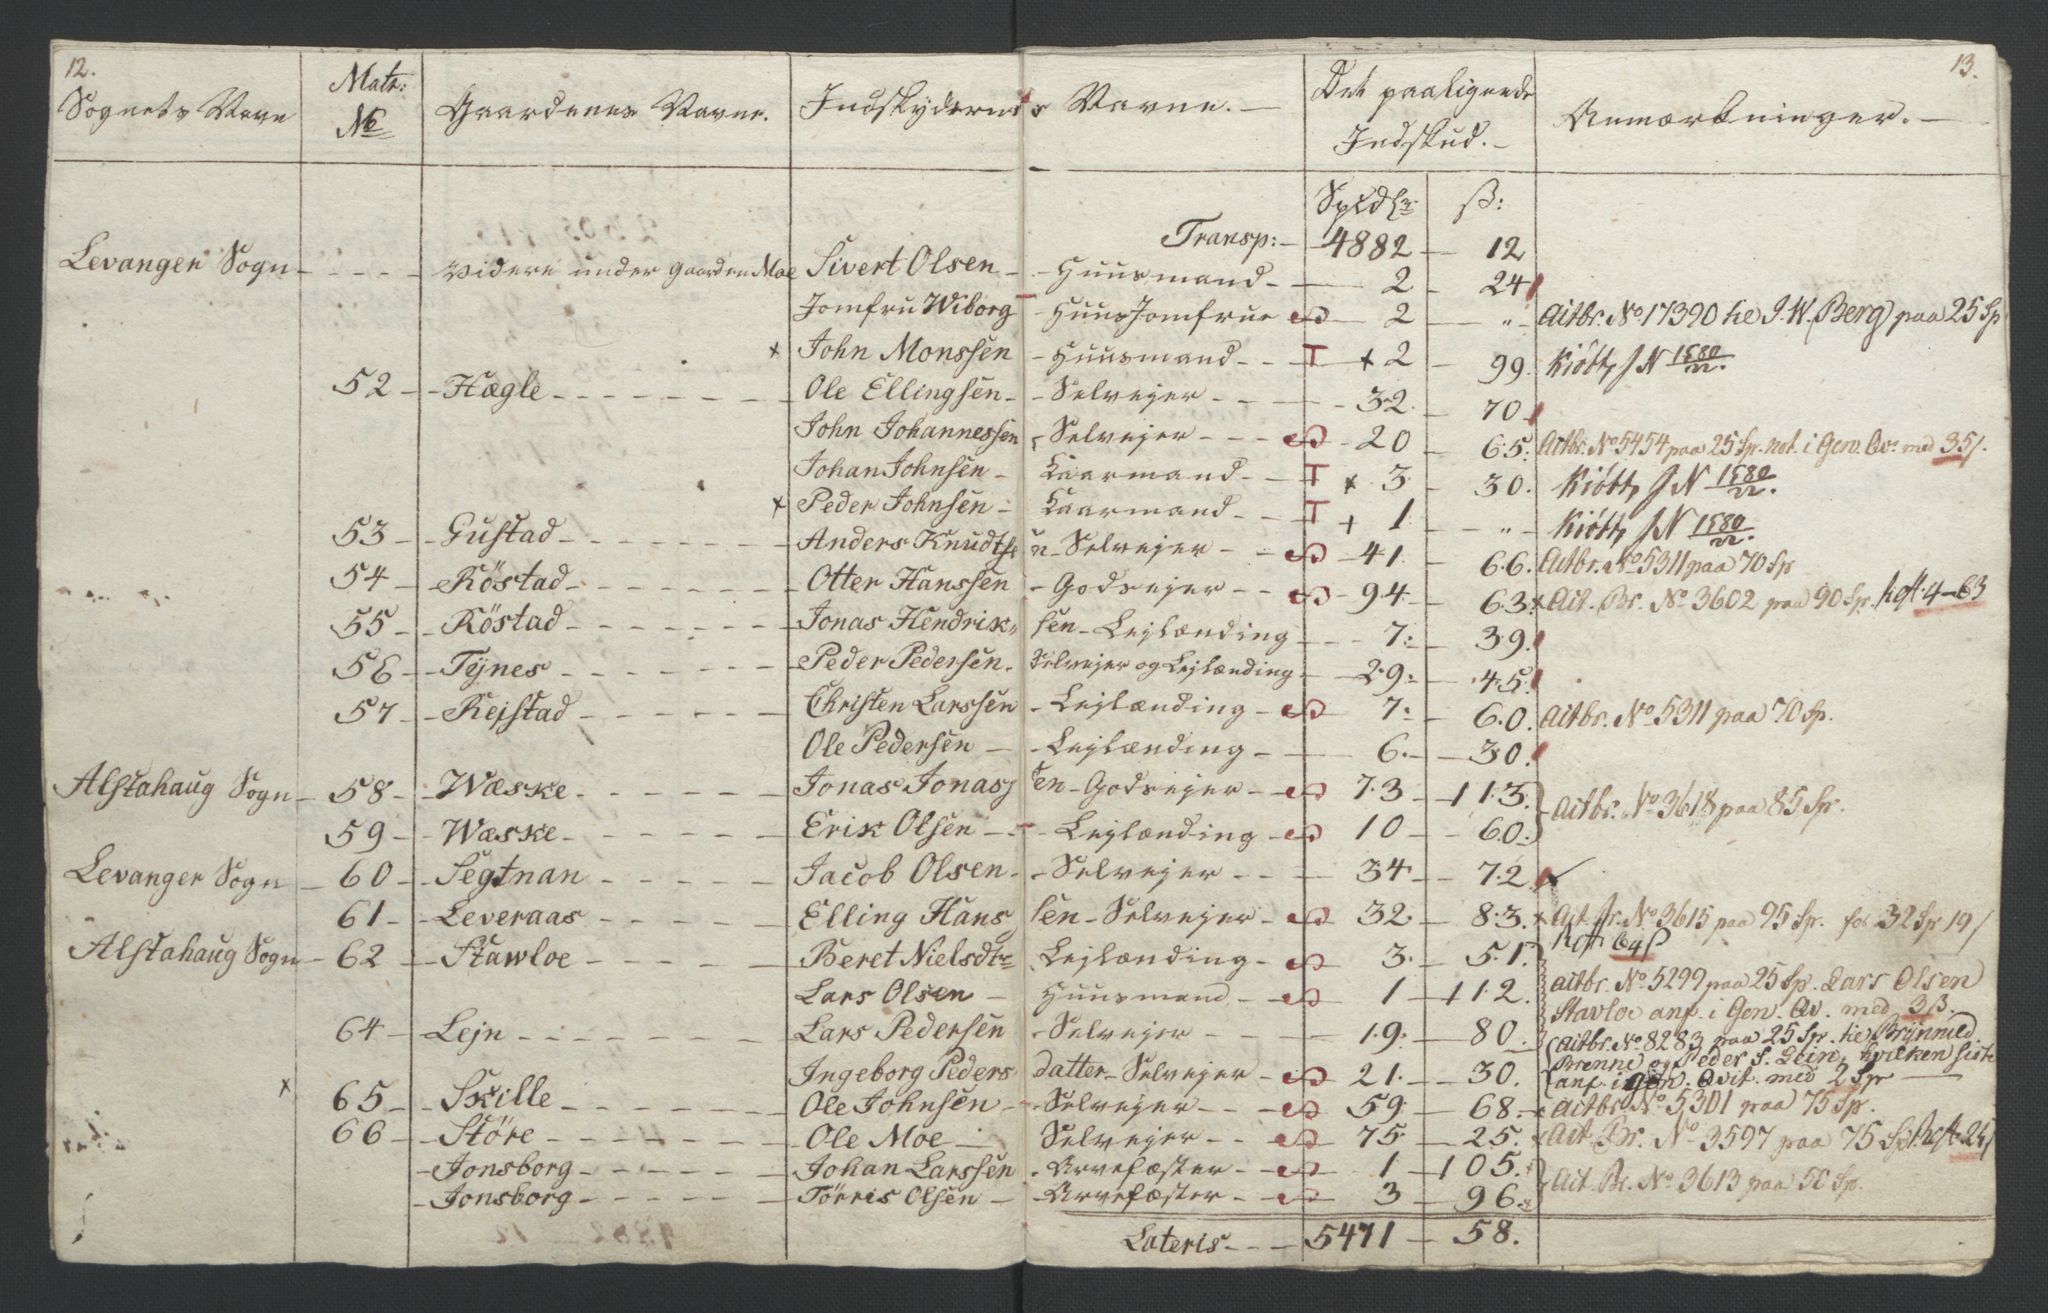 12.
13.
Sognets Navn
Matr: No
Gaardenes Navne.
Indskydernes Navne.
Det paaligende Indskud.
Anmærkninger.
Spedlr ß:
Transp: 4882 12
Levanger Sogn - videre under gaarden Moe Sivert Olsen - Huusmand - 2 - 24
Jomfru Wiborg - HuusJomfrue S 2 - " - Aitbr. No 17390 he J. W. Berg) paa 25 Sp
x John Monssen - Huusmand - T x 2 99. Kiöbt, J N 1580/22.
52 - Hægle - Ole Ellingsen - Selvejer - 32. 70
John Johannessen - Selvejer - S - 20 65. Aitbr. No 5454 paa 25 Sp. not. i Gen. Qv. med 35/.
Johan Johnsen - Kaarmand - T x 3. 30. Kiöbt, J N 1580/22.
x Peder Johnsen - Kaarmand - T + 1. - " - Kiöbt, J N 1580/22.
53 - Gustad - Anders Knudtsen - Selvejer - S - 41. 66. Aitbr. No 5311 paa 70 Sp
54 - Röstad - Otter Hanssen - Godsejer - S - 94. 63 x Ait. Br. No 3602 paa 90 Sp. 4-63
55 - Röstad - Jonas Hendriksen - Lejlænding - 7. 39.
56 - Tÿnes - Peder Pedersen. Selvejer og Lejlænding - 29. 45.
57 - Rejstad - Christen Larssen - Lejlænding - S 7. 60. Aitbr. No 5311 paa 70 Sp.
Ole Pedersen - Lejlænding - 6. 30.
Alstahaug Sogn - 58 - Wæske - Jonas Jonassen - Godsejer - S 73 - 113. Aitbr. No 3618 paa 85 Sp.
59 - Wæske - Erik Olsen - Lejlænding - S 10 - 60.
Levanger Sogn - 60 - Segtnan - Jacob Olsen - Selvejer - 34 72
61 - Leveraas - Elling Hanssen - Selvejer - S - 32 83. x Ait. Br. No 3615 paa 95 Sp. for 32 Sp 19/
Alstahaug Sogn - 62 - Stawloe - Beret Nielsdtr Lejlænding - S 3. 51.
Lars Olsen - Huusmand - S 1 112. Aitbr. No 5299 paa 25 Sp. Lars Olsen
Stavloe anf. i Gen. Qv. med 3ß.
64 - Lejn - Lars Pedersen - Selvejer - 19. 80. Aitbr. No 8283 paa 25 Sp. he Brynnild
Brenne og Peder S. Lein, hvilken siste
x Ingeborg Pedersdatter - Selvejer - S 21. 30. anf. i gen. Qvit. med 2 Sp
65 - Skille - Ole Johnsen - Selvejer - S 59 68. x Aitbr. No 5301 paa 75 Sp.
66 - Störe - Ole Moe - Selvejer - S 75 25. x Ait. Br. No 3597 paa 75 Sp
Jonsborg - Johan Larssen - Arvefæster - S 1 105. Ait. Br. No 3613 paa 50 Sp.
Jonsborg - Törris Olsen - Arvefæster - S 3 96.
Lateris - 5471 58.